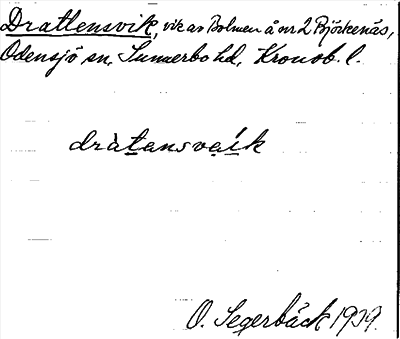 Drattensvik, vik av Bolmen å nr 2 Björkenäs,
Odensjö sn, Sunnerbo hd, Kronob. l.
dràtansvaík
O. Segerbäck 1939.